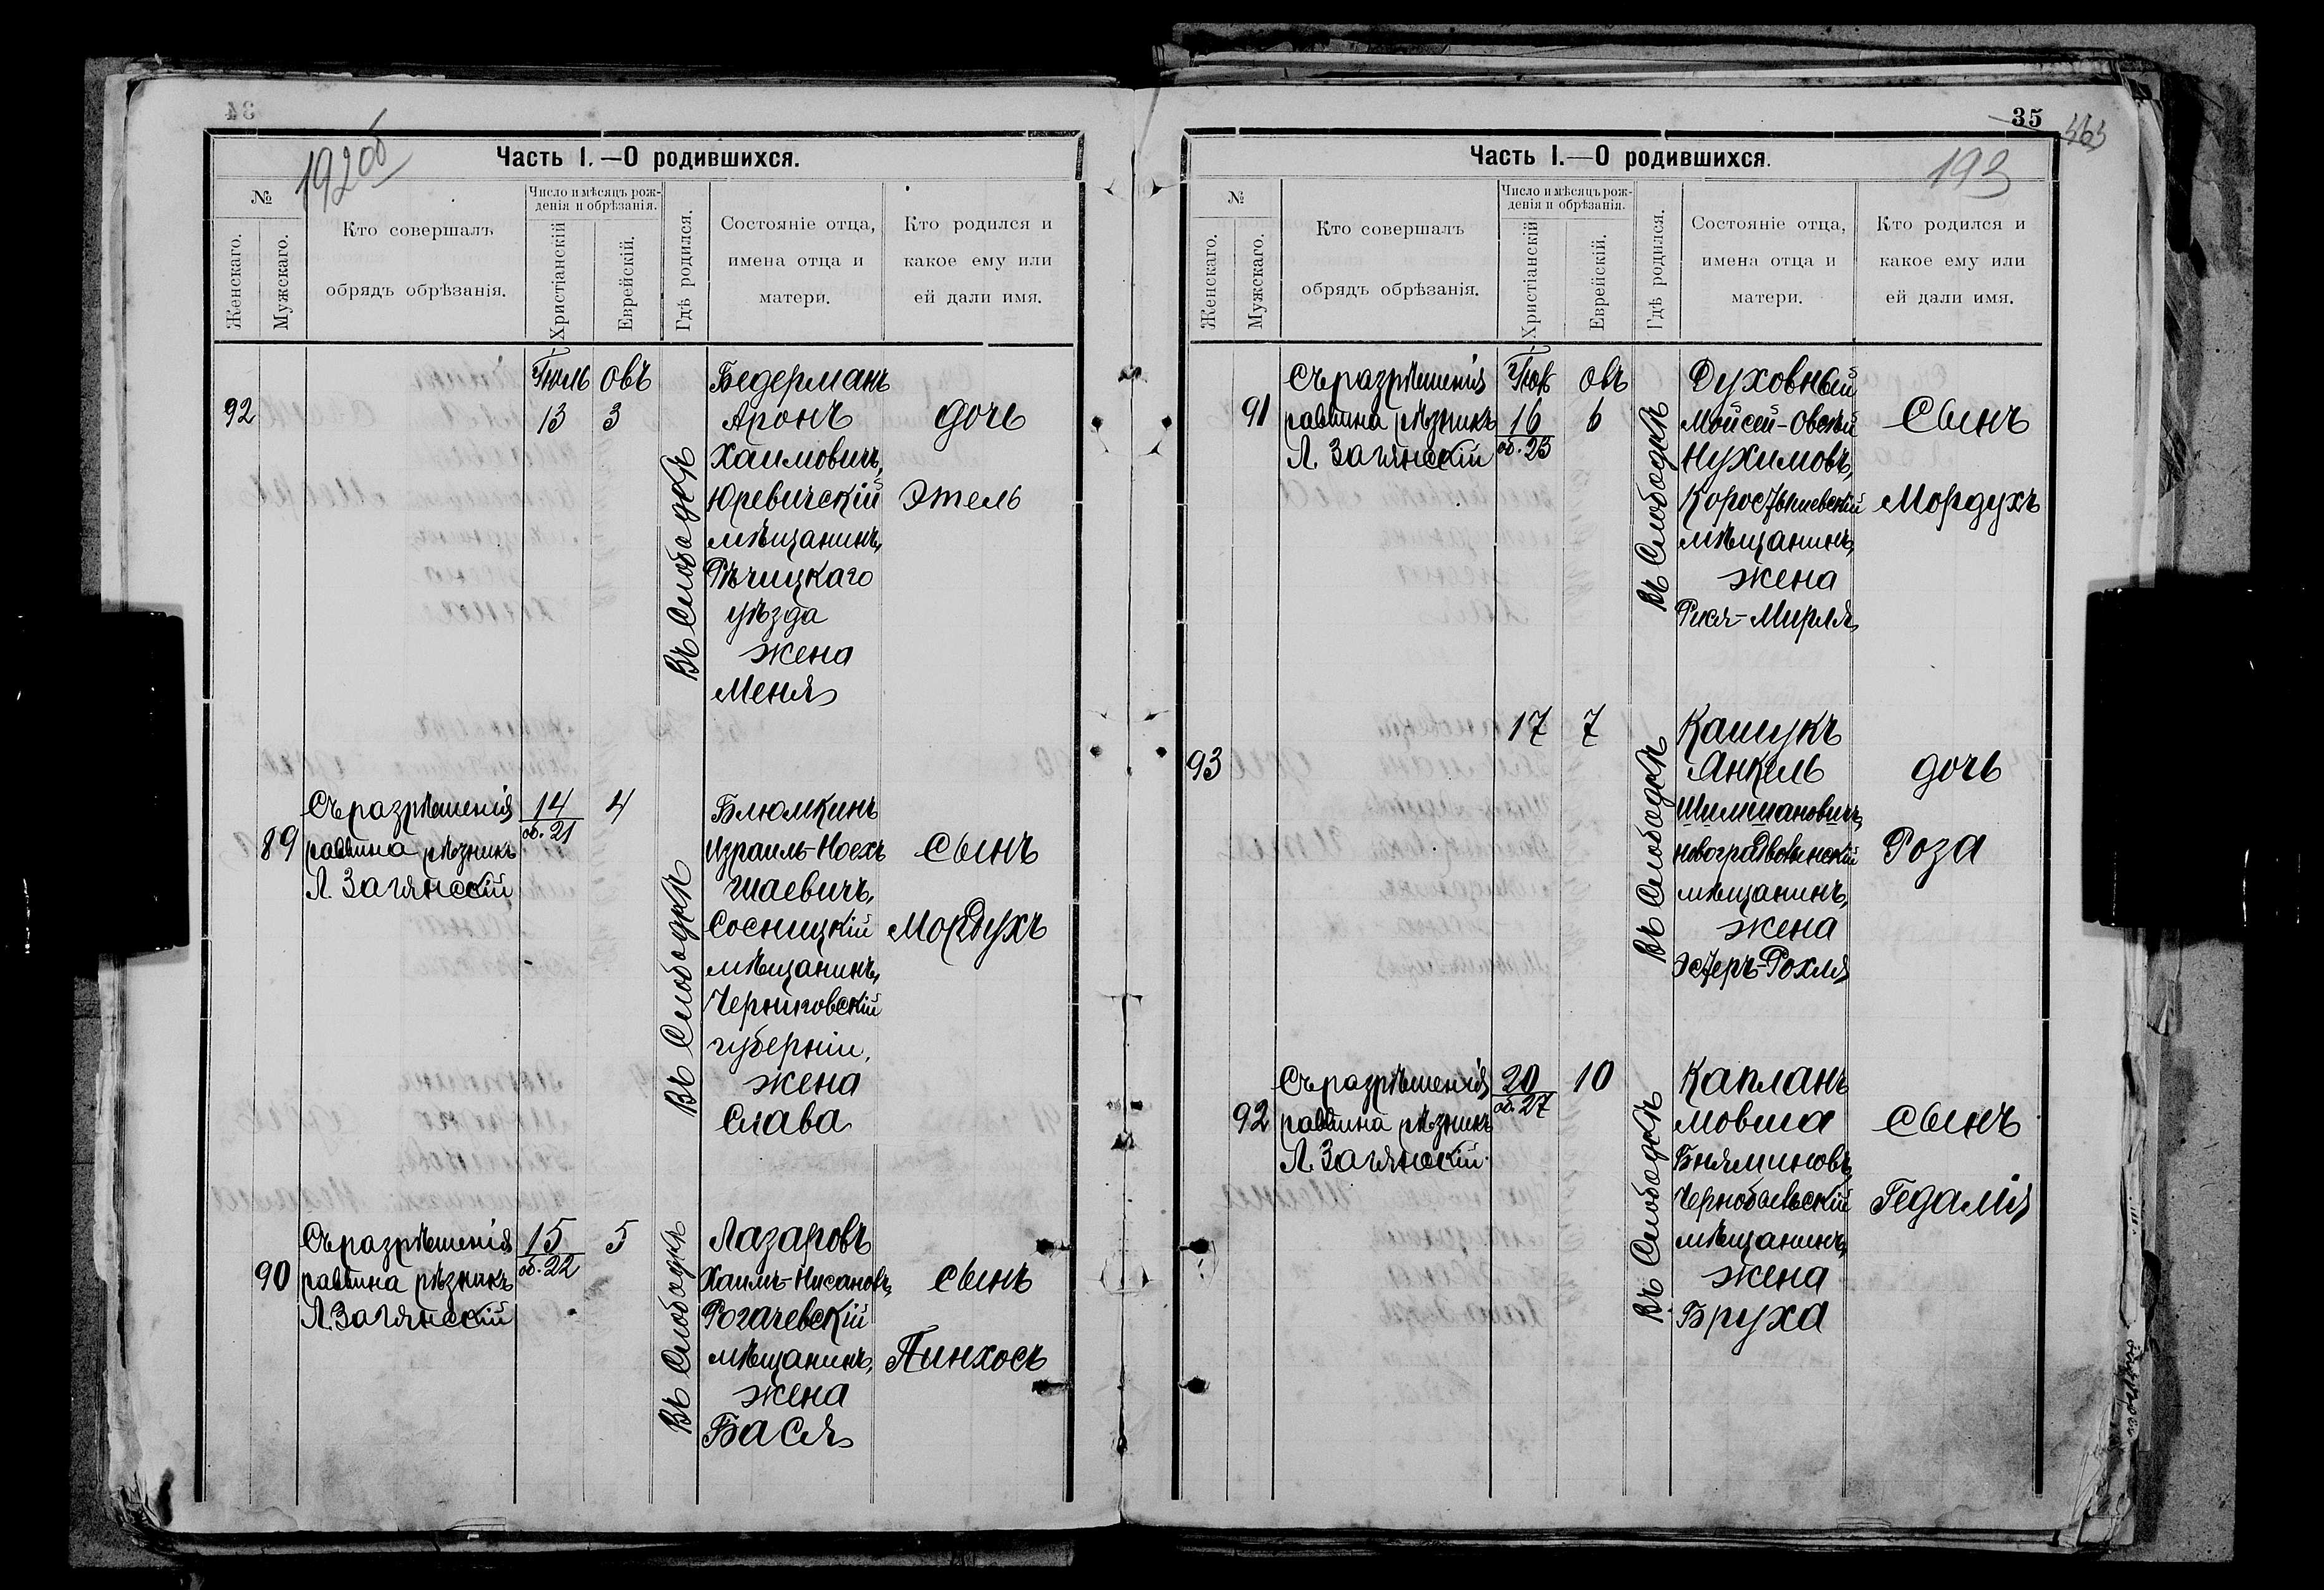 34
192об
Часть I. —О родившихся.
№
Женскаго.
Мужскаго.
Кто совершалъ
обрядъ обрѣзанія.
Число и мѣсяцъ рож-
денія и обрѣзанія.
Христіанскій
Еврейскій.
Гдѣ родился.
Состояніе отца,
имена отца и
матери.
Кто родился и
какое ему или
ей дали имя.
92
Іюль
13
овъ
3
Въ Слободкѣ
Бедерманъ
Аронъ
Хаимовичъ,
Юревичскій
мѣщанинъ,
Рѣчицкаго
уѣзда
жена
Меня
дочь
Этель
89
Съ разрѣшенія
раввина рѣзникъ
Л. Загянскій
14
об. 21
4
Въ Слободкѣ
Блюмкинъ
Израиль-Ноехъ
Шаевичъ,
Сосницкій
мѣщанинъ,
Черниговскій
губерніи,
жена
Слава
сынъ
Мордухъ
90
Съ разрѣшенія
раввина рѣзникъ
Л. Загянскій
15
об. 22
5
Въ Слободкѣ
Лазаровъ
Хаимъ-Нисановъ,
Рогачевскій
мѣщанинъ,
жена
Бася
сынъ
Пинхосъ
35
193
Часть I.—О родившихся.
№
Женскаго.
Мужскаго.
Кто совершалъ
обрядъ обрѣзанія.
Число и мѣсяцъ рож-
денія и обрѣзанія.
Христіанскій
Еврейскій.
Гдѣ родился.
Состояніе отца,
имена отца и
матери.
Кто родился и
какое ему или
ей дали имя.
91
Съ разрѣшенія
раввина рѣзникъ
Л. Загянскій
16
об. 23
овъ
6
Въ Слободкѣ
Духовный
Мойсей-Овсѣй
Нухимовъ,
Коростышевскій
мѣщанинъ,
жена
Рися-Мирля
Сынъ
Мордухъ
93
17
7
Въ Слободкѣ
Кашукъ
Анкель
Шилимановичъ,
новоградволынскій
мѣщанинъ,
жена
Эстеръ-Рохля
дочь
Роза
92
Съ разрѣшенія
раввина рѣзникъ
Л. Загянскій
20
об. 27
10
Въ Слободкѣ
Капланъ
Мовша
Бняминовъ,
Чернобаевскій
мѣщанинъ,
жена
Бруха
сынъ
Гедалія